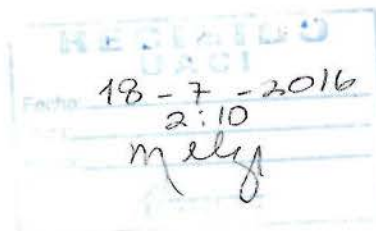 RECIBIDO
UACI
Fecha: 18 - 7 - 2016
2:10